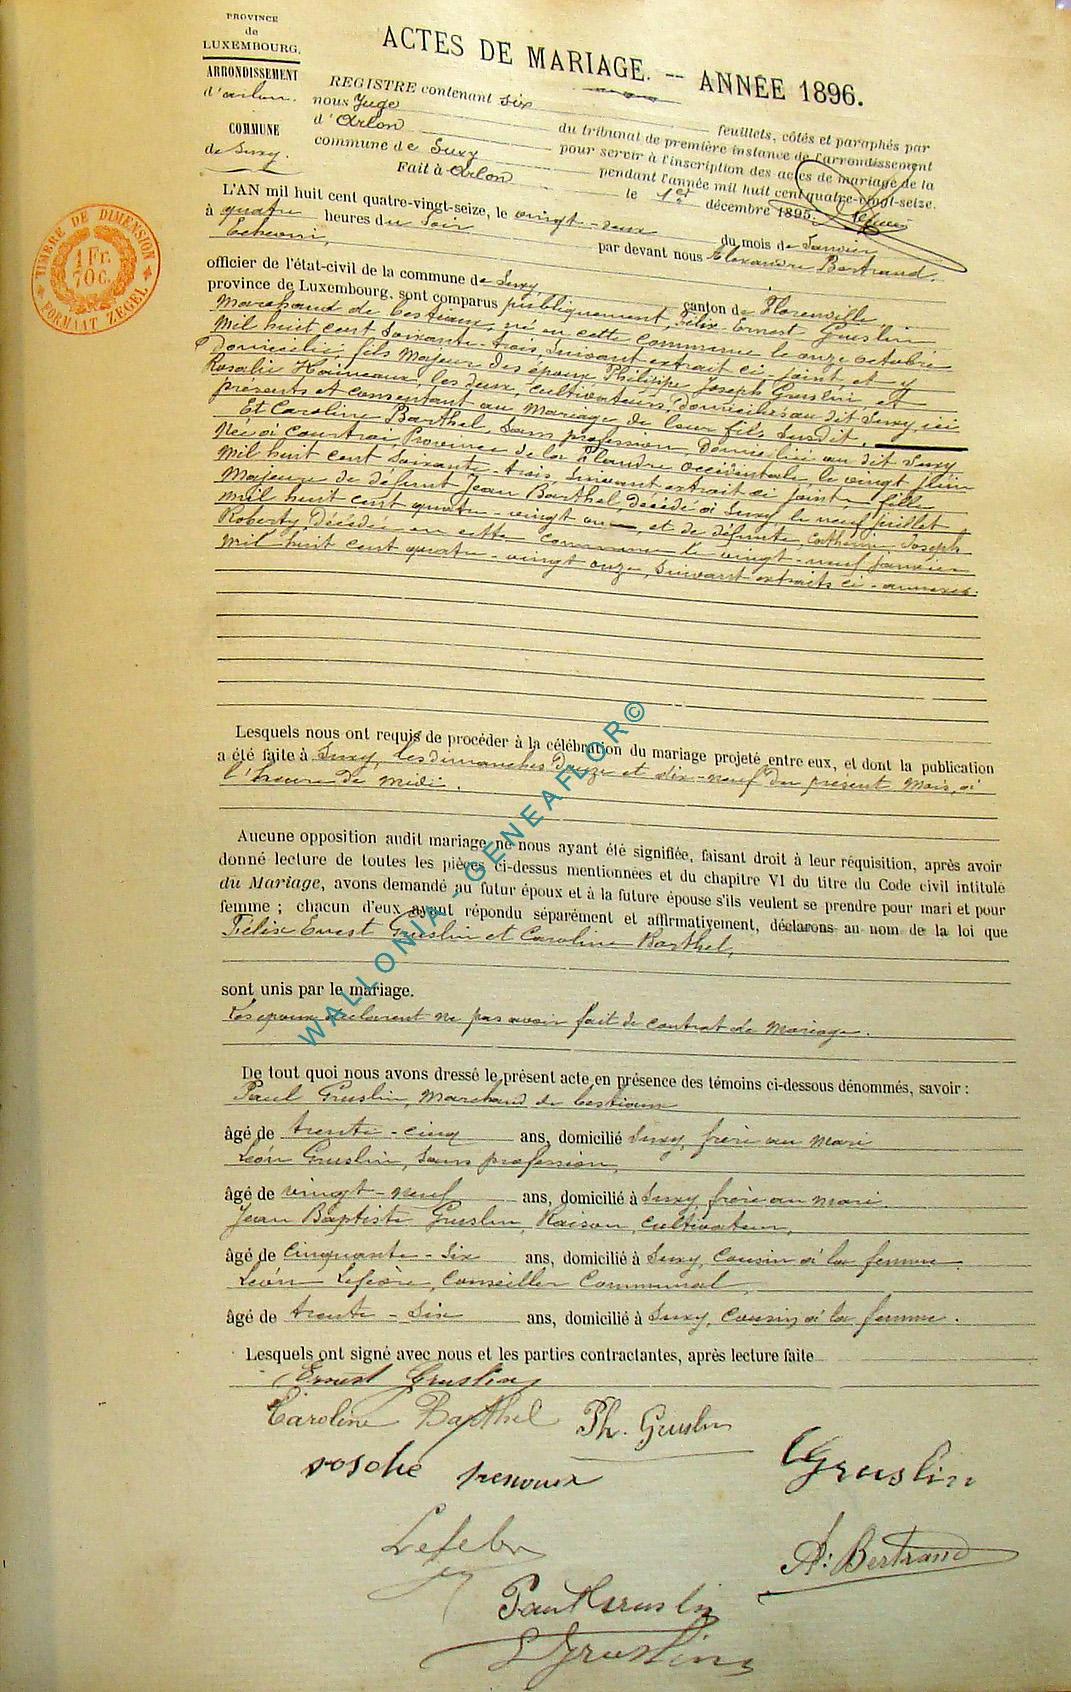 PROVINCE
de
LUXEMBOURG.
ARRONDISSEMENT
d'arlon.
COMMUNE
de Suxy.
TIMBRE DE DIMENSION
1 Fr.
70 C.
FORMAAT ZEGEL
ACTES DE MARIAGE. -- ANNÉE 1896.
REGISTRE contenant six feuillets, côtés et paraphés par
nous Juge du tribunal de première instance de l'arrondissement
d'Arlon pour servir à l'inscription des actes de mariage de la
commune de Suxy pendant l'année mil huit cent quatre-vingt-seize.
Fait à Arlon le 1er décembre 1895.
L'AN mil huit cent quatre-vingt-seize, le vingt-deux du mois de Janvier
à quatre heures du Soir par devant nous Alexandre Bertrand,
Echevin,
officier de l'état-civil de la commune de Suxy canton de Florenville
province de Luxembourg, sont comparus publiquement, Félix Ernest Gruslin
Marchand de bestiaux, né en cette commune le onze octobre
mil huit cent Soixante-trois, Suivant extrait ci-joint et y
Domicilié, fils Majeur des époux Philippe Joseph Gruslin et
Rosalie les deux cultivateurs, Domiciliés au dit Suxy ici
présents et consentant au Mariage de leur fils Susdit.
Et Caroline Barthel, Sans profession, Domiciliée au dit Suxy
Née à Courtrai Province de la Flandre Occidentale, le vingt Juin
Mil huit cent Soixante-trois, Suivant extrait ci joint, fille
Majeure de défunt Jean Barthel, décédé à Suxy le neuf juillet
mil huit cent quatre-vingt un et de défunte, Catherine Joseph
Roberty, Décédée en cette Commune le vingt-neuf Janvier
Mil huit cent quatre-vingt onze, Suivant extraits ci-annexés.
Lesquels nous ont requis de procéder à la célébration du mariage projeté entre eux, et dont la publication
a été faite à Suxy, les dimanches Douze et dix-neuf du présent Mois, à
l'heure de midi.
Aucune opposition audit mariage ne nous ayant été signifiée, faisant droit à leur réquisition, après avoir
donné lecture de toutes les pièces ci-dessus mentionnées et du chapitre VI du titre du Code civil intitulé
du Mariage, avons demandé au futur époux et à la future épouse s'ils veulent se prendre pour mari et pour
femme ; chacun d'eux ayant répondu séparément et affirmativement, déclarons au nom de la loi que
Félix Ernest Gruslin et Caroline Barthel,
sont unis par le mariage.
Les époux déclarent ne pas avoir fait de contrat de Mariage.
De tout quoi nous avons dressé le présent acte en présence des témoins ci-dessous dénommés, savoir :
Paul Gruslin, Marchand de bestiaux
âgé de trente-cinq ans, domicilié Suxy, frère au mari
Léon Gruslin, Sans profession,
âgé de vingt-neuf ans, domicilié à Suxy frère au mari.
Jean Baptiste Gruslin, cultivateur,
âgé de Cinquante-Six ans, domicilié à Suxy, Cousin à la femme.
Léon Conseiller Communal
âgé de trente-Six ans, domicilié à Suxy, Cousin à la femme.
Lesquels ont signé avec nous et les parties contractantes, après lecture faite
Ernest Gruslin
Caroline Barthel Ph. Gruslin
Gruslin
A: Bertrand
Paul Gruslin
L Gruslin
WALLONIA - GENEAFLOR©